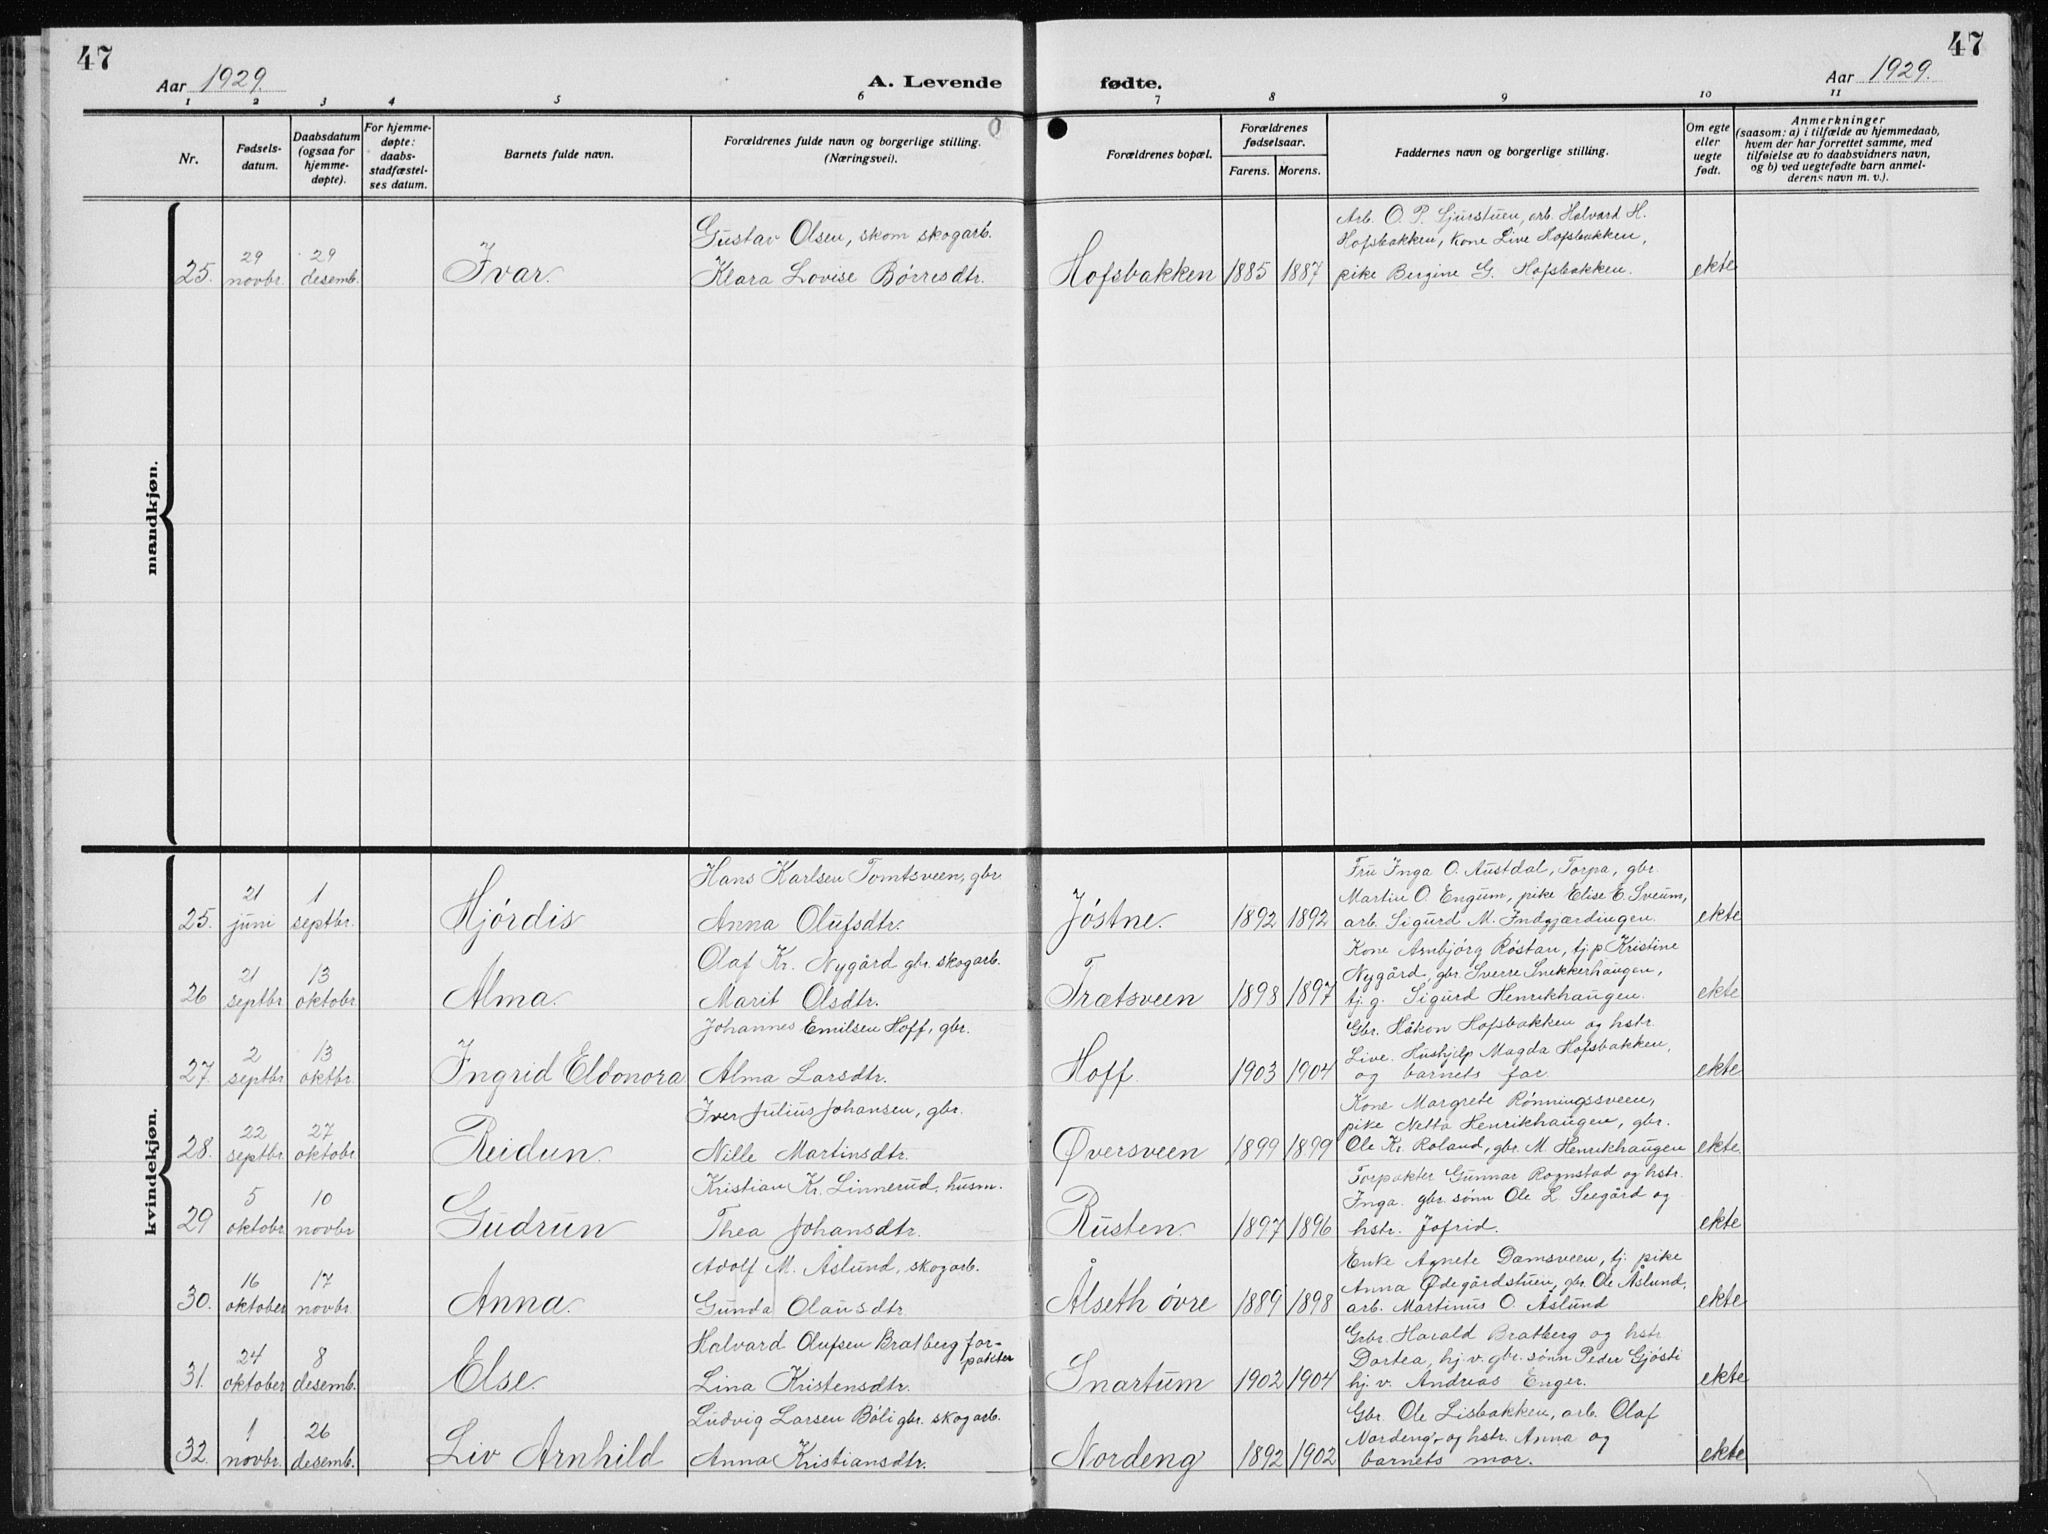 47
47
Aar 1929.
A. Levende fødte.
Aar 1929.
1 2 3 4 5 6 7 8 9 10 11
Nr.
Fødsels-
datum.
Daabsdatum
(ogsaa for
hjemme-
døpte).
For hjemme-
døpte:
daabs-
stadfæstel-
ses datum.
Barnets fulde navn.
Forældrenes fulde navn og borgerlige stilling.
(Næringsvei).
0
Forældrenes bopæl.
Forældrenes
fødselsaar.
Farens. Morens.
Faddernes navn og borgerlige stilling.
Om egte
eller
uegte
født.
Anmerkninger
(saasom: a) i tilfælde av hjemmedaab,
hvem der har forrettet samme, med
tilføielse av to daabsvidners navn,
og b) ved uegtefødte barn anmel-
derens navn m. v.).
mandkjøn.
25.
29
novbr.
29
desemb.
Ivar.
Gustav Olsen, skom skogarb.
Klara Lovise Børresdtr.
Hofsbakken
1885
1887
Arb. O. P. Sjurstuen, arb. Halvard H.
Hofsbakken, Kone Live Hofsbakken,
pike Bergine G. Hofsbakken.
ekte
kvindekjøn.
25.
21
juni
1
septbr.
Hjørdis
Hans Karlsen Tomtsveen, gbr
Anna Olufsdtr.
Jøstne.
1892
1892
Fru Inga O. Austdal, Torpa, gbr.
Martin O. Engum, pike Elise E. Sveum,
arb. Sigurd M. Indgjærdingen.
ekte
26
21
septbr
13
oktobr
Alma.
Olaf Kr. Nygård gbr. skogarb.
Marit Olsdtr.
Trætsveen
1898
1897
Kone Arnbjørg Røstan, tj.p. Kristine
Nygård, gbr. Sverre Snekkerhaugen,
tj.g. Sigurd Henrikhaugen.
ekte
27.
2
septbr
13
oktbr.
Ingrid Eldonora
Johannes Emilsen Hoff, gbr.
Alma Larsdtr.
Hoff
1903
1904
Gbr. Håkon Hofsbakken og hstr.
Live. Hushjelp Magda Hofsbakken,
og barnets far
ekte
28.
22
septbr.
27
oktobr.
Reidun.
Iver Julius Johansen, gbr.
Nille Martinsdtr.
Øversveen
1899
1899
Kone Margrete Rønningssveen,
pike Netta Henrikhaugen, gbr.
Ole Kr. Roland, gbr. M. Henrikhaugen
ekte.
29
5
oktobr.
10
novbr
Gudrun
Kristian Kr. Linnerud, husm.
Thea Johansdtr.
Rusten.
1897
1896
Forpakter Gunnar Rognstad og hstr.
Inga. gbr. sønn Ole L. Seegård og
hstr. Jofrid.
ekte
30.
16
oktober
17
novbr.
Anna.
Adolf M. Åslund, skogarb.
Gunda Olausdtr.
Ålseth øvre
1889
1898
Enke Agnete Damsveen, tj. pike
Anna Ødegårdstuen, gbr. Ole Åslund,
arb. Martinus O. Åslund
ekte
31.
24
oktober
8
desemb.
Else.
Halvard Olufsen Bratberg for-
pakter
Lina Kristensdtr.
Snartum
1902
1904
Grbr. Harald Bratberg og hstr.
Dortea, hj.v. gbr. sønn Peder Gjøsti
hj. v. Andreas Enger.
ekte
32.
1
novbr.
26
desemb.
Liv Arnhild
Ludvig Larsen Bøli gbr. skogarb.
Anna Kristiansdtr.
Nordeng
1892
1902
Gbr. Ole Lisbakken, arb. Olaf
Nordeng, og hstr. Anna og
barnets mor.
ekte